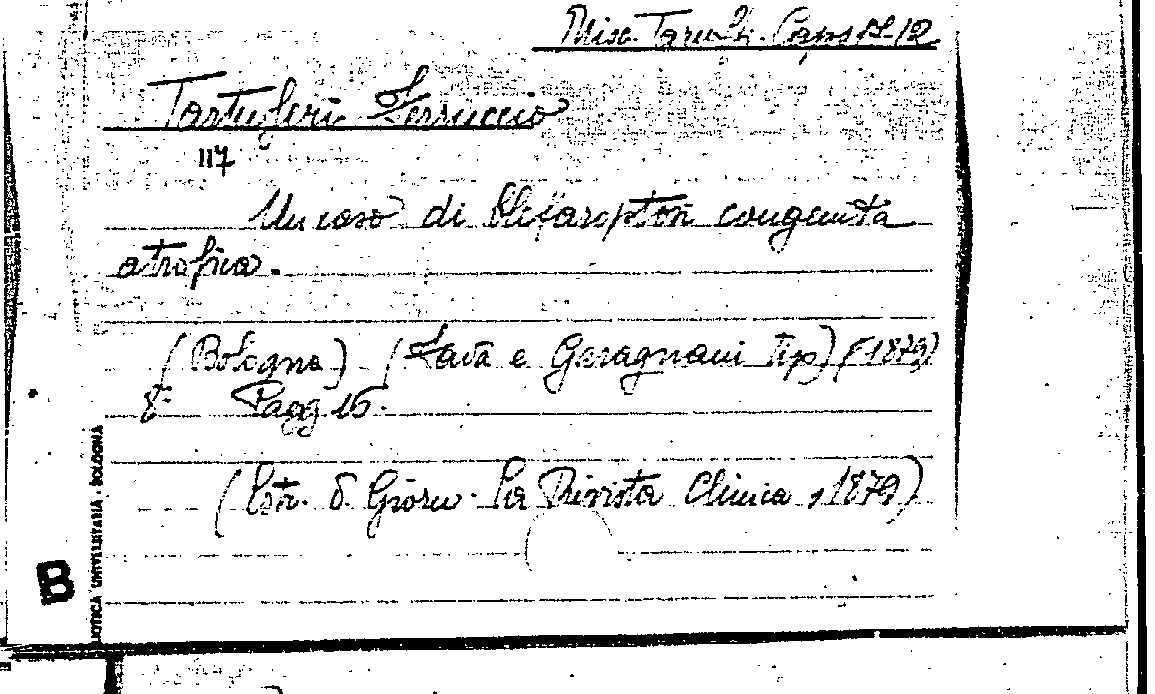 Misc. Taruffi. Caps 12
Tartuferi Ferruccio
117
Un caso di blefaroptosi congenita
atrofica.
(Bologna) (Fava e Garagnani Tip) (1879)
8° Pagg 16.
(Estr. d. Giorn. La Rivista Clinica, 1879)
B
BIBLIOTECA UNIVERSITARIA - BOLOGNA